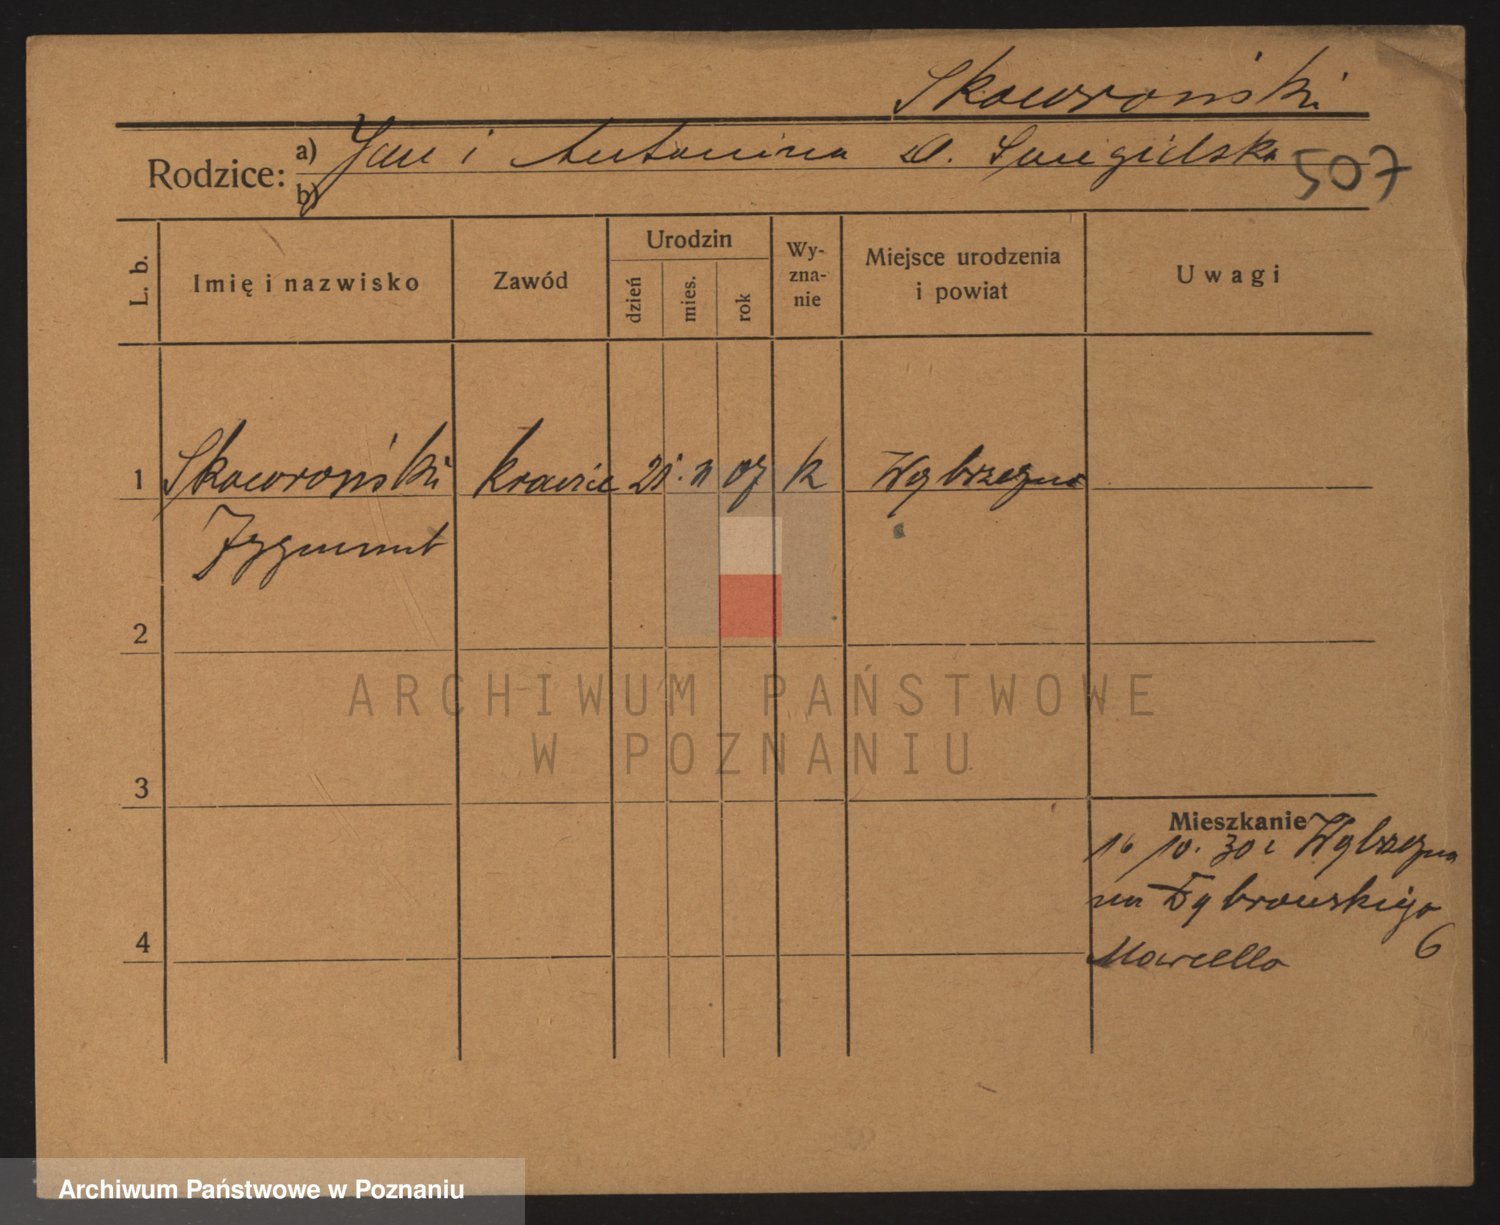 Skowroński
Rodzice: a) Jan i Antonina d. 507
b)
L. b. Imię i nazwisko Zawód Urodzin dzień mies. rok Wy-zna-nie Miejsce urodzenia i powiat Uwagi
1 Skowroński krawiec 21. 11 07 k Wąbrzeźno
Zygmunt
2
3
4
Mieszkanie
16 10. 30 z Wąbrzeźna
na Dąbrowskiego
6
Marcella
ARCHIWUM PAŃSTWOWE
W POZNANIU
Archiwum Państwowe w Poznaniu